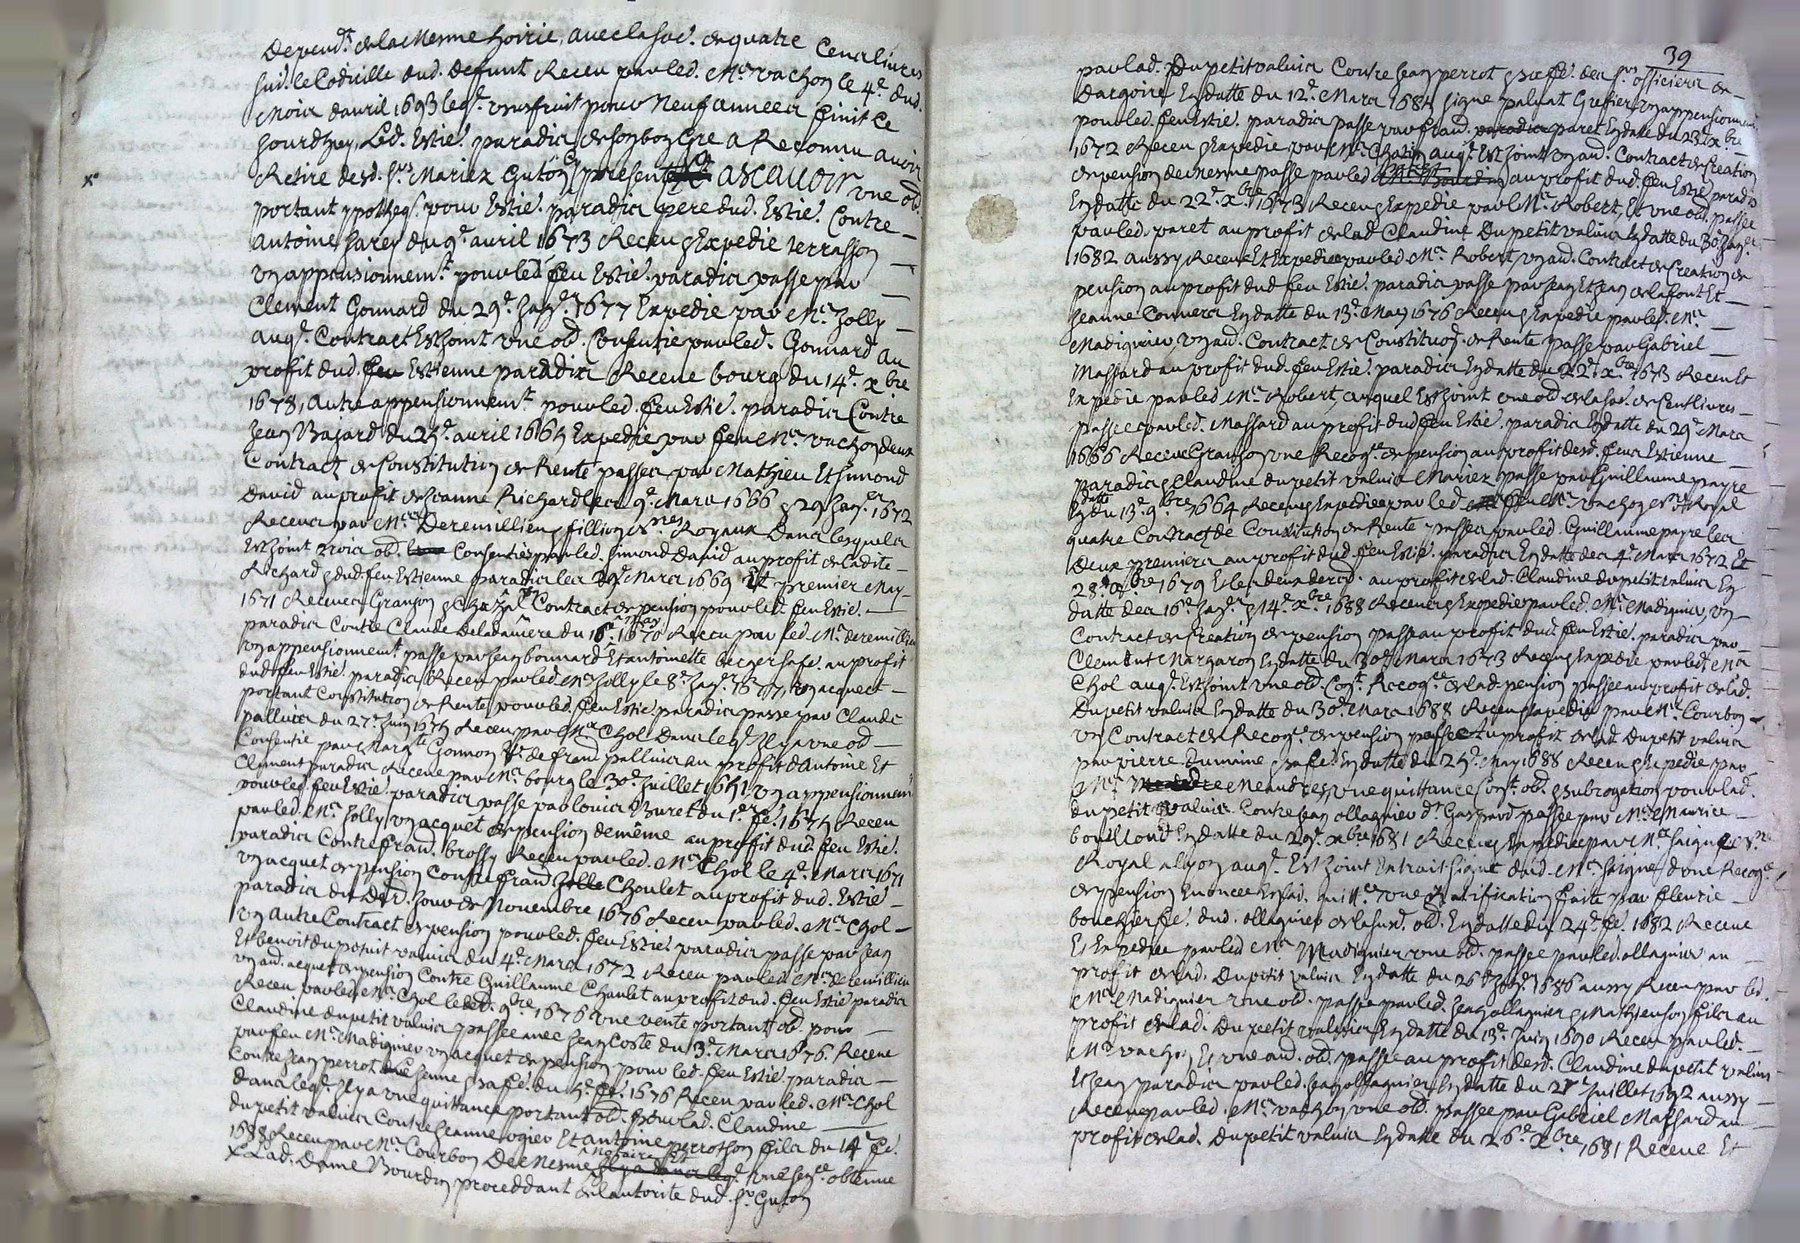 Depend.t de lad mesme hoirie, avec la so.e de quatre Cent livres
suiv.t le Codicille dud. Defunt Receu par led. M.e vachon le 4.e dud.
Mois davril 1693 leq.l usufruit pour Neuf annees finit Ce
Jourdhuy Led. Estie.e paradis de son bon Gre a Reconnu avoir
Retire desd. s.rs Mariez Guton present ascavoir une ob.
portant ypotheq. pour Estie. paradis pere dud. Estie. Contre
antoine Jarey du 9.e avril 1673 Receu & Expedie terrasson
un appensionnem.t pour led. feu Estie. paradis passe par
Clement Gonnard du 29.e Jan.r 1677 Expedie par M.e Jolly
auq.l Contract Est Joint une ob. Consentie par led. Gonnard au
profit dud. feu Estienne paradix Receue bourg du 14.e xbre
1678, autre appensionnem.t pour led. feu Estie. paradis Contre
Jean Bazard du 25.e avril 1665 Expedie par feu M.e vachon deux
Contract de Constitution de Rente passes par Mathieu Et Simond
David au profit de Jeanne Richard les 9.e Mars 1666 & 29 Jan.er 1672
Receus par M.es Deremillieu & fillion n.res Royaux Dans lesquels
Est Joint trois ob. Consenties par led. Simond David au profit de ladite
Richard & dud. feu Estienne paradis les 29.e Mars 1669 Et premier May
1671 Receues Granjon & Chazal Contract de pension pour led. feu Estie.
paradis Contre Claude Deladamere du 16.e May 1670 Receu par led. M.e deremillieu
un appensionnem.t passe par Jean bonnard Et antoinette berger sa fe. au profit
dud. feu Estie. paradis Receu par led. M.e Jolly le 8.e Jan.r 1677, un acquest
portant Constitution de Rente pour led. feu Estie paradis passe par Claude
palluis du 27.e Juin 1675 Receu par M.e Chol Dans leq.l Il y a une ob
Consentie par Marg.te Gonnon v.e de fran.s palluis au profit d'antoine Et
Clement paradis Receue par M.e bourg le 30.e Juillet 1651 un appensionnem
pour led. feu Estie. paradis passe par louis Buret du 1.er fe. 1675 Receu
par led. M.e Jolly un acquet de pension de même au profit dud. feu Estie.
paradis Contre fran.s brossy Receu par led. M.e Chol le 4.e Mars 1671
un acquet de pension Contre fran.s Choulet au profit dud. Estie
paradis du Der.d Jour de Novembre 1676 Receu par led. M.e Chol
un autre Contract de pension pour led. feu Estie. paradis passe par Jean
Et benoit du petit valuis du 4.e Mars 1672 Receu par led. M.e deremillieu
un au.e acquet de pension Contre Guillaume Choulet au profit dud. feu Estie paradis
Receu par led. M.e Chol le 9.bre 1676 une vente portant ob. pour
Claudine du petit valuis passee avec Jean Coste du 3.e Mars 1676 Receue
par feu M.e Madignier un acquet de pension pour led. feu Estie. paradis
Contre Jean perrot Jeune & sa fe. du 5.e fe. 1676 Receu par led. M.e Chol
dans leq.l Il y a une quittance portant ob. pour lad. Claudine
du petit valuis Contre Jeanne ogier Et antoine perrothon fils du 14.e fe.
1688 Receu par M.e Courbon De mesme Notaire Et une Sen.ce obtenue
x Lad. Dame Bourdin proceddant de lautorite dud. s.r Guton
39
par lad. Du petit valuis Contre Jean perrot & sa fe. des s.rs officiers de
dargoire En datte du 12.e Mars 1685 signe palyat Grefier un appensionnem
pour led. feu Estie. paradis passe par fran.s paret En date du 23.e xbre
1672 Receu & Expedie par M.e Chazin auq.l Est Joint un au. Contract de Creation
de pension de mesme passe par led. au profit dud. feu Estie paradis
En datte du 22.e xbre 1673 Receu & Expedie par M.e Robert, Et une ob. passee
par led. paret au profit de lad Claudine Du petit valuis En datte du 30 Jan.er
1682 aussy Receue Et Expediee par led. M.e Robert, un au. Contract de Creation de
pension au profit dud feu Estie. paradis passe par Jean Et Jean de lafont Et
Jeanne Commers En datte du 13.e May 1676 Receu & Expedie par led. M.e
Madignier, un au. Contract de Constituon. de Rente passe par Gabriel
Massard au profit dud. feu Estie. paradis En datte du 22.e xbre 1673 Receu Et
Expedie par led. M.e Robert, auquel Est Joint une ob de la so.e de Cent livres
passee par led. Massard au profit dud feu Estie. paradis En datte du 29.e Mars
1666 Receue Granjon une Recog.ce de pension au profit desd. feus Estienne
paradis & Claudine du petit valuis Mariez passe par Guillaume payre
En datte du 13.e 9bre 1664 Receu & Expediee par led. feu M.e vachon n.re Royal
quatre Contracts de Constitution de Rente passes par led. Guillaume payre les
Deux premiers au profit dud. feu Estie. paradis En datte des 4.e Mars 1672 Et
28.e xbre 1679 Et les deux der.es au profit de lad. Claudine du petit valuis En
datte des 16.e Jan.r & 14.e xbre 1688 Receues & Expedies par led. M.e Madignier, un
Contract de Creation de pension passe au profit dud feu Estie. paradis par
Clement Margaron En datte du 30.e Mars 1673 Receu & Expedie par led. M.e
Chol auq.l Est Joint une ob. Con.t Recog.ce de lad. pension passee au profit de lad.
Du petit valuis En datte du 30.e Mars 1688 Receu & Expedie par M.e Courbon
un Contract de Recog.ce de pension passe au profit de lad. Du petit valuis
par pierre Dumaine & sa fe. En datte du 25.e May 1688 Receu & Expedie par
M.e Meandre, une quittance Con.t ob. & subrogation pour lad.
du petit valuis Contre Jean ollagnier d.t Gaspard passee par M.e Maurice
bouilloud En datte du 29.e xbre 1681 Receue & Expediee par M.e Saigne n.re
Royal a lyon auq.l Est Joint Extrait signe dud. M.e Saigne, d'une Recog.ce
de pension Enoncee En lad. quit.ce une Ratification faite par fleurie
bouchier fe. dud. ollagnier de la susd. ob. En datte du 24.e fe. 1682 Receue
Et Expediee par led. M.e Madignier une ob. passee par led. ollagnier au
profit de lad. Du petit valuis En datte du 26.e Jan.r 1686 aussy Receu par led.
M.e Madignier une ob. passee par led. Jean ollagnier & Mathieu son fils au
profit de lad. Du petit valuis En datte du 13.e Juin 1690 Receu par led.
M.e vachon Et une au. ob. passee au profit desd. Claudine du petit valuis
Et Jean paradis par led. Jean ollagnier En datte du 21.e Juillet 1692 aussy
Receue par led. M.e vachon une ob. passee par Gabriel Massard au
profit de lad. Du petit valuis En datte du 26.e xbre 1681 Receue Et